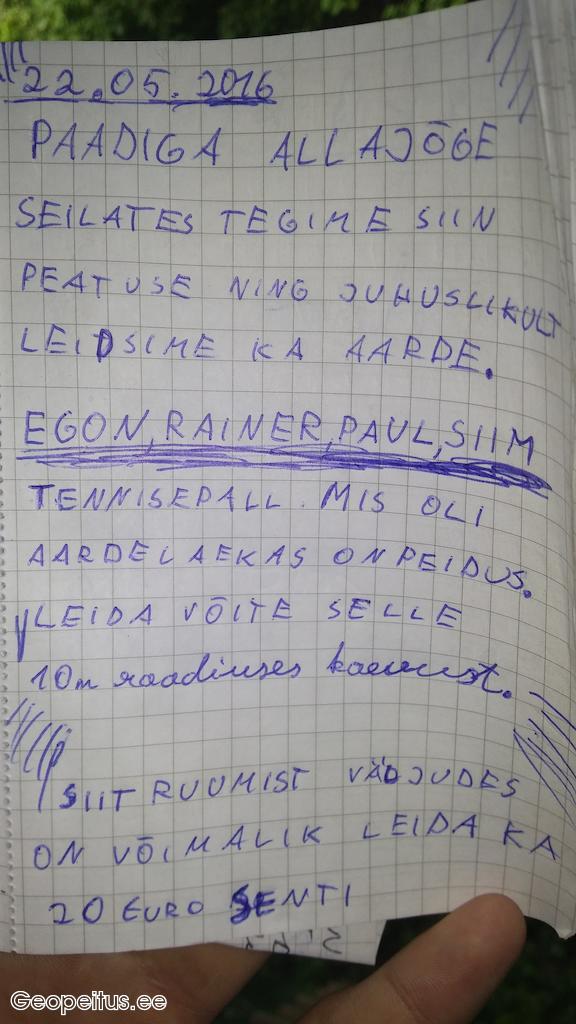 22.05.2016
PAADIGA ALLAJÕGE
SEILATES TEGIME SIIN
PEATUSE NING JUHUSLIKULT
LEIDSIME KA AARDE.
EGON, RAINER, PAUL, SIIM
TENNISEPALL. MIS OLI
AARDELAEKAS ON PEIDUS.
LEIDA VÕITE SELLE
10m raadiuses kaevust.
SIIT RUUMIST VÄLJUDES
ON VÕIMALIK LEIDA KA
20 EURO SENTI
Geopeitus.ee